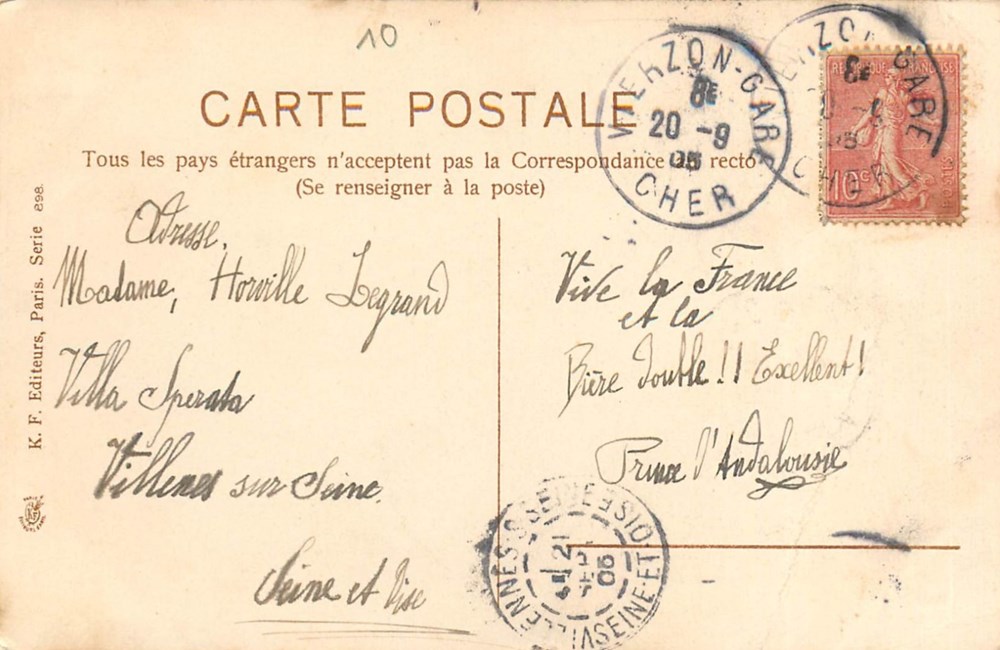 10
CARTE POSTALE
Tous les pays étrangers n'acceptent pas la Correspondance au recto
(Se renseigner à la poste)
VIERZON-GARE
8E
20 -9
05
CHER
RÉPUBLIQUE FRANÇAISE
10 c
POSTES
K. F. Editeurs, Paris. Serie 898.
Adresse,
Madame, Horville Legrand
Villa Sperata
Villenes sur Seine.
Seine et Oise
Vive la France
et la
Bière double!! Exellent!
Prince d'Andalousie
VILLENNES-S-SEINE
SEINE-ET-OISE
21
SEPT